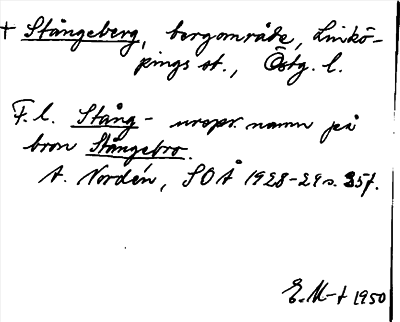 + Stångeberg, bergområde, Linkö-
pings st., Östg. l.
F. l. Stång- urspr. namn på
bron Stångebro.
A. Nordén, SOÅ 1928-29 s. 35f.
E. M-t 1950